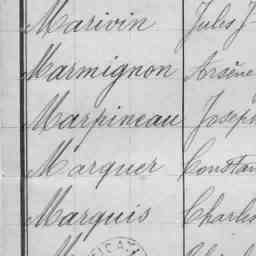 Marivin Jules J
Marmignon Arsène
Marpineau Joseph
Marquer Constan
Marquis Charles